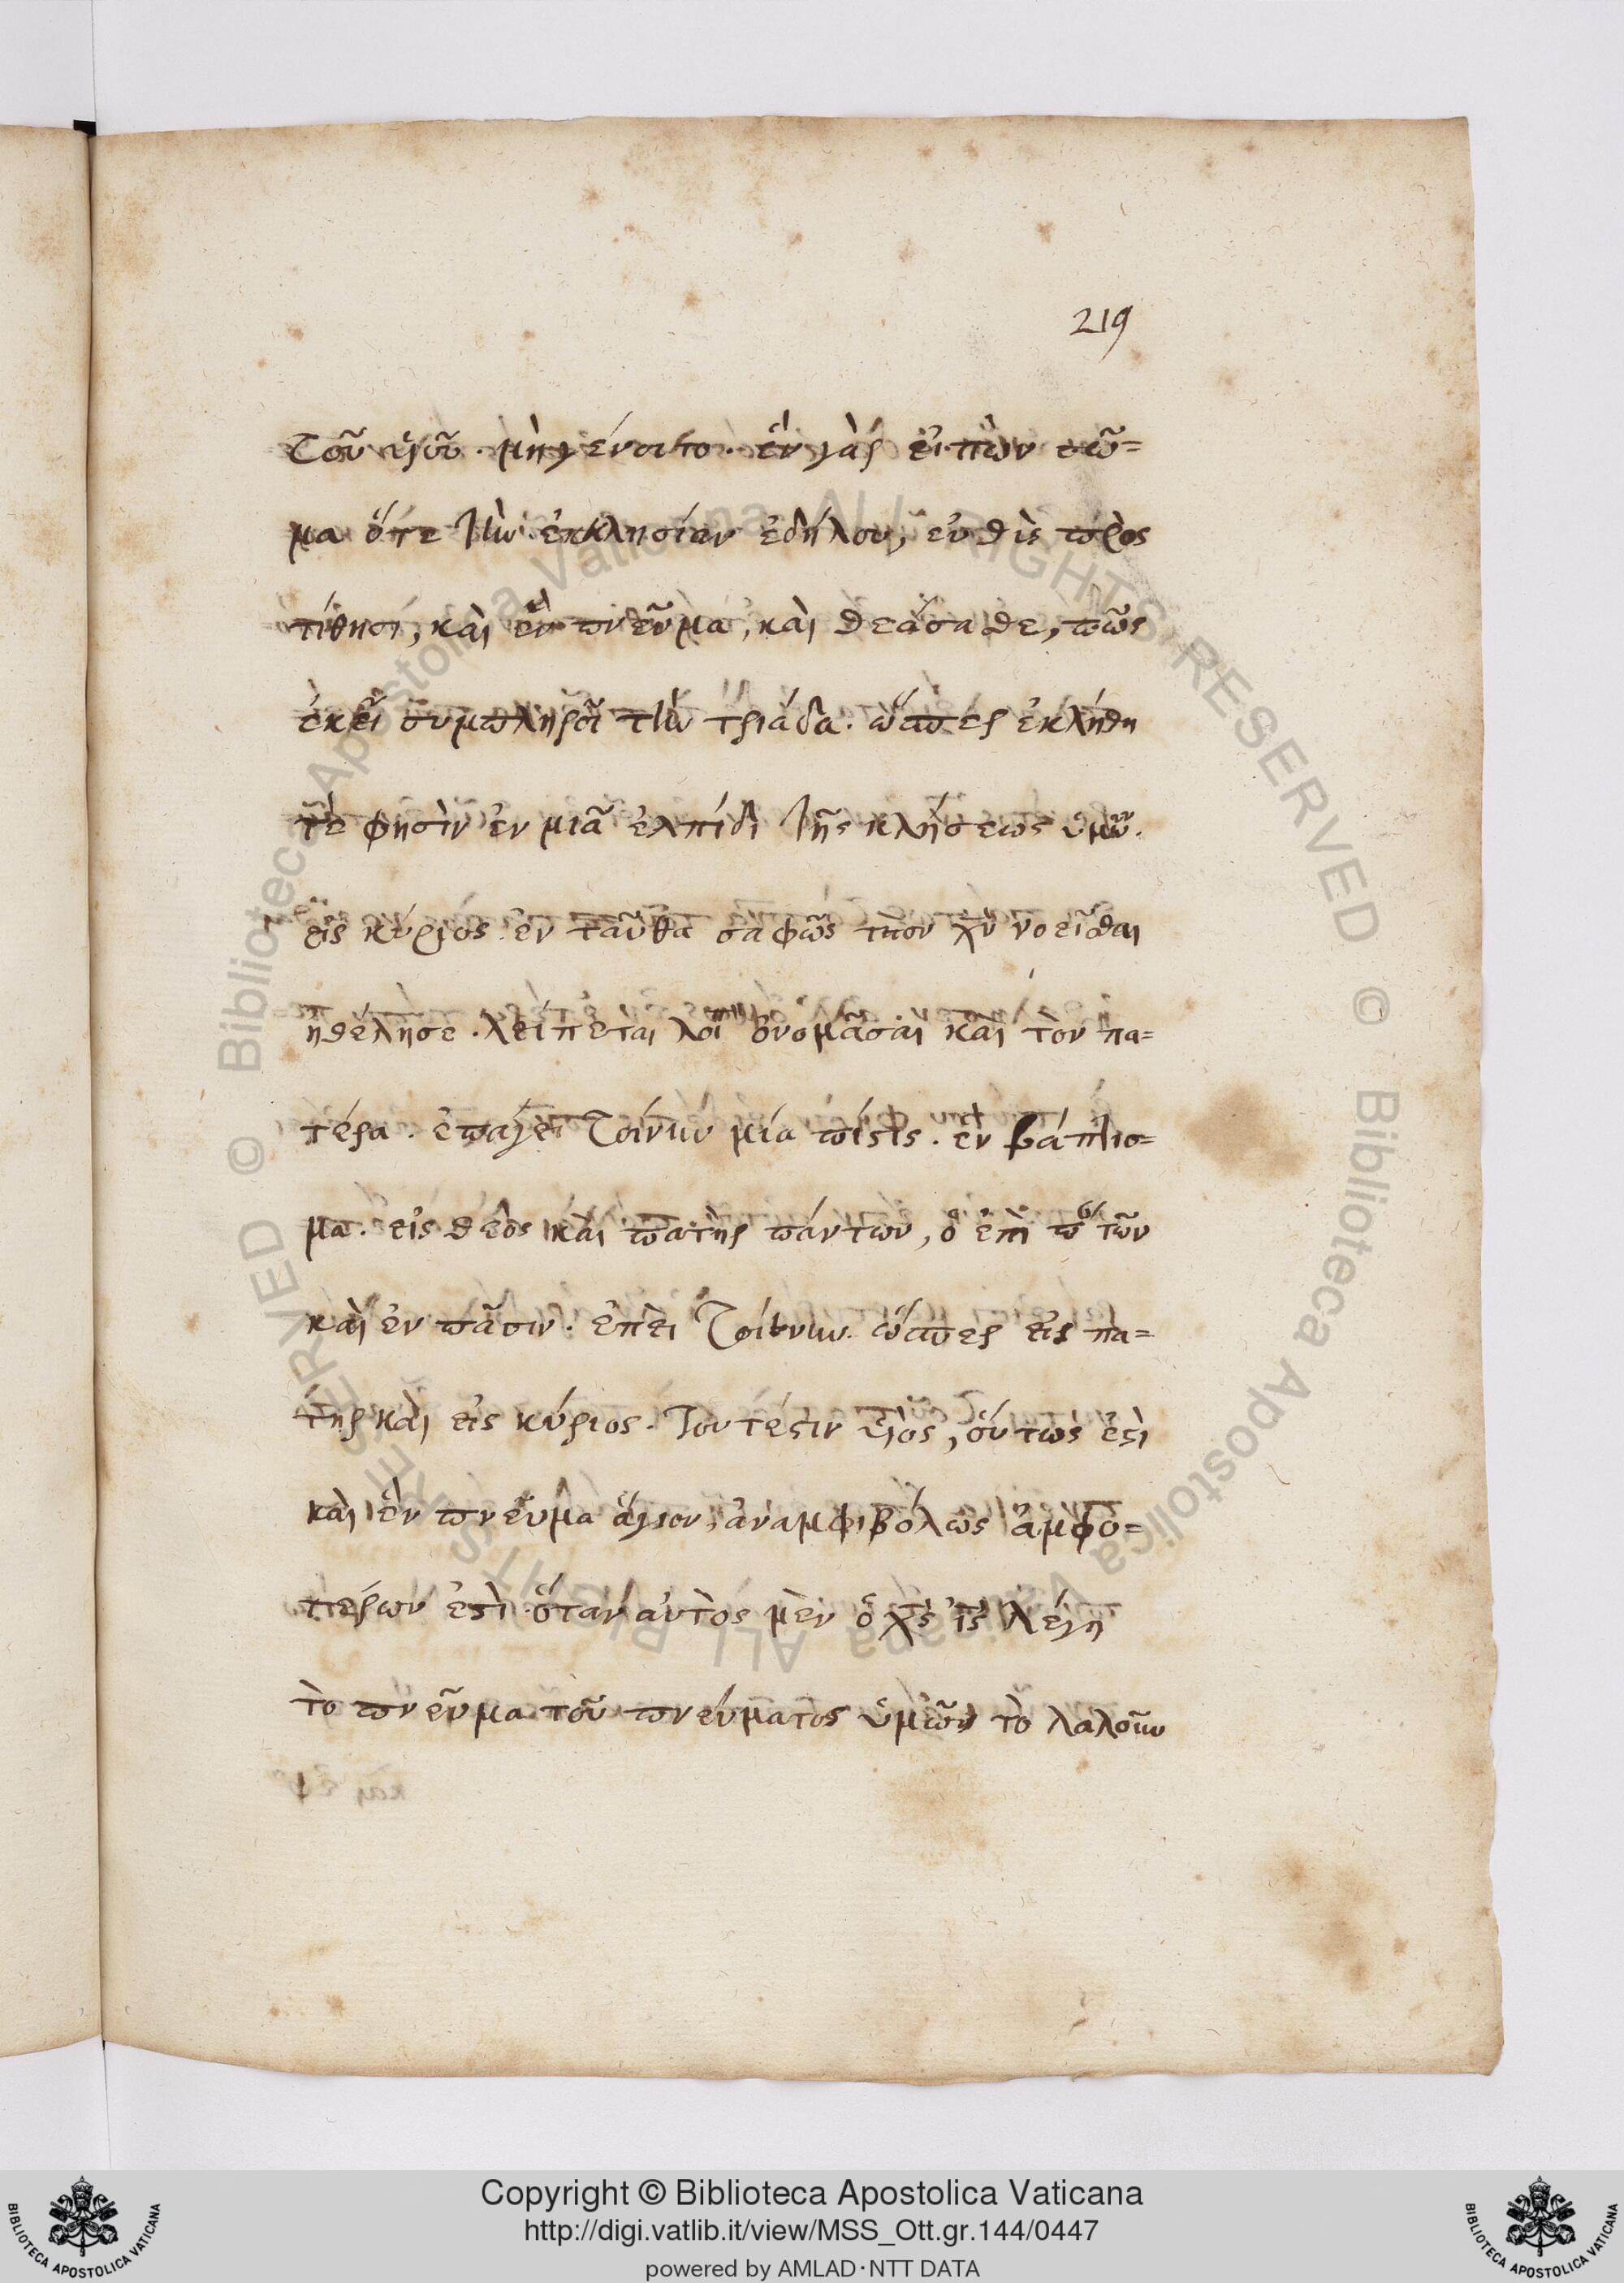 219
τοῦ υἱοῦ. μὴ γένοιτο. ἓν γὰρ εἰπὼν σῶ=
μα ὅτε τὴν ἐκκλησίαν ἐδήλου, εὐθὺς προσ
τίθησι, καὶ ἓν πνεῦμα, καὶ θεάσασθε, πῶς
ἐκεῖ συμπληροῖ τὴν τριάδα. ὥσπερ ἐκλήθη
τέ φησὶν ἐν μιᾷ ἐλπίδι τῆς κλήσεως ὑμῶν.
εἷς κύριος. ἐνταῦθα σαφῶς τὸν χν νοεῖσθαι
ἠθέλησε. λείπεται λοι ὀνομάσαι καὶ τὸν πα=
τέρα. ἐπάγει τοίνυν μία πίστις. ἓν βάπτισ=
μα. εἷς θεὸς καὶ πατὴρ πάντων, ὁ ἐπὶ πάντων
καὶ ἐν πᾶσιν. ἐπεὶ τοίνυν ὥσπερ εἷς πα=
τὴρ καὶ εἷς κύριος. τουτέστιν υἱὸς, οὕτως ἐστὶ
καὶ ἓν πνεῦμα ἅγιον, ἀναμφιβόλως ἀμφο=
τέρων ἐστὶ. ὅταν αὐτὸς μὲν ὁ χς ις λέγῃ
τὸ πνεῦμα τοῦ πνεύματος ὑμῶν τὸ λαλοῦν
Copyright © Biblioteca Apostolica Vaticana
http://digi.vatlib.it/view/MSS_Ott.gr.144/0447
powered by AMLAD·NTT DATA